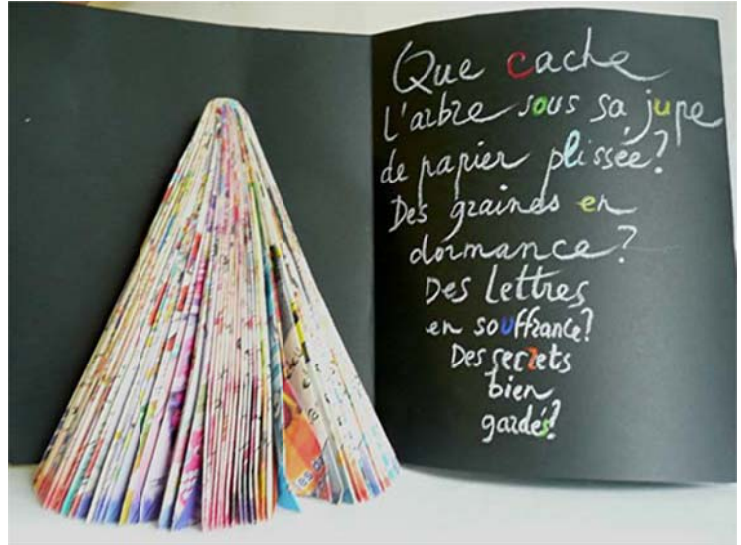 Que cache
l'arbre sous sa jupe
de papier plissée?
Des graines en
dormance?
Des lettres
en souffrance?
Des secrets
bien
gardés?